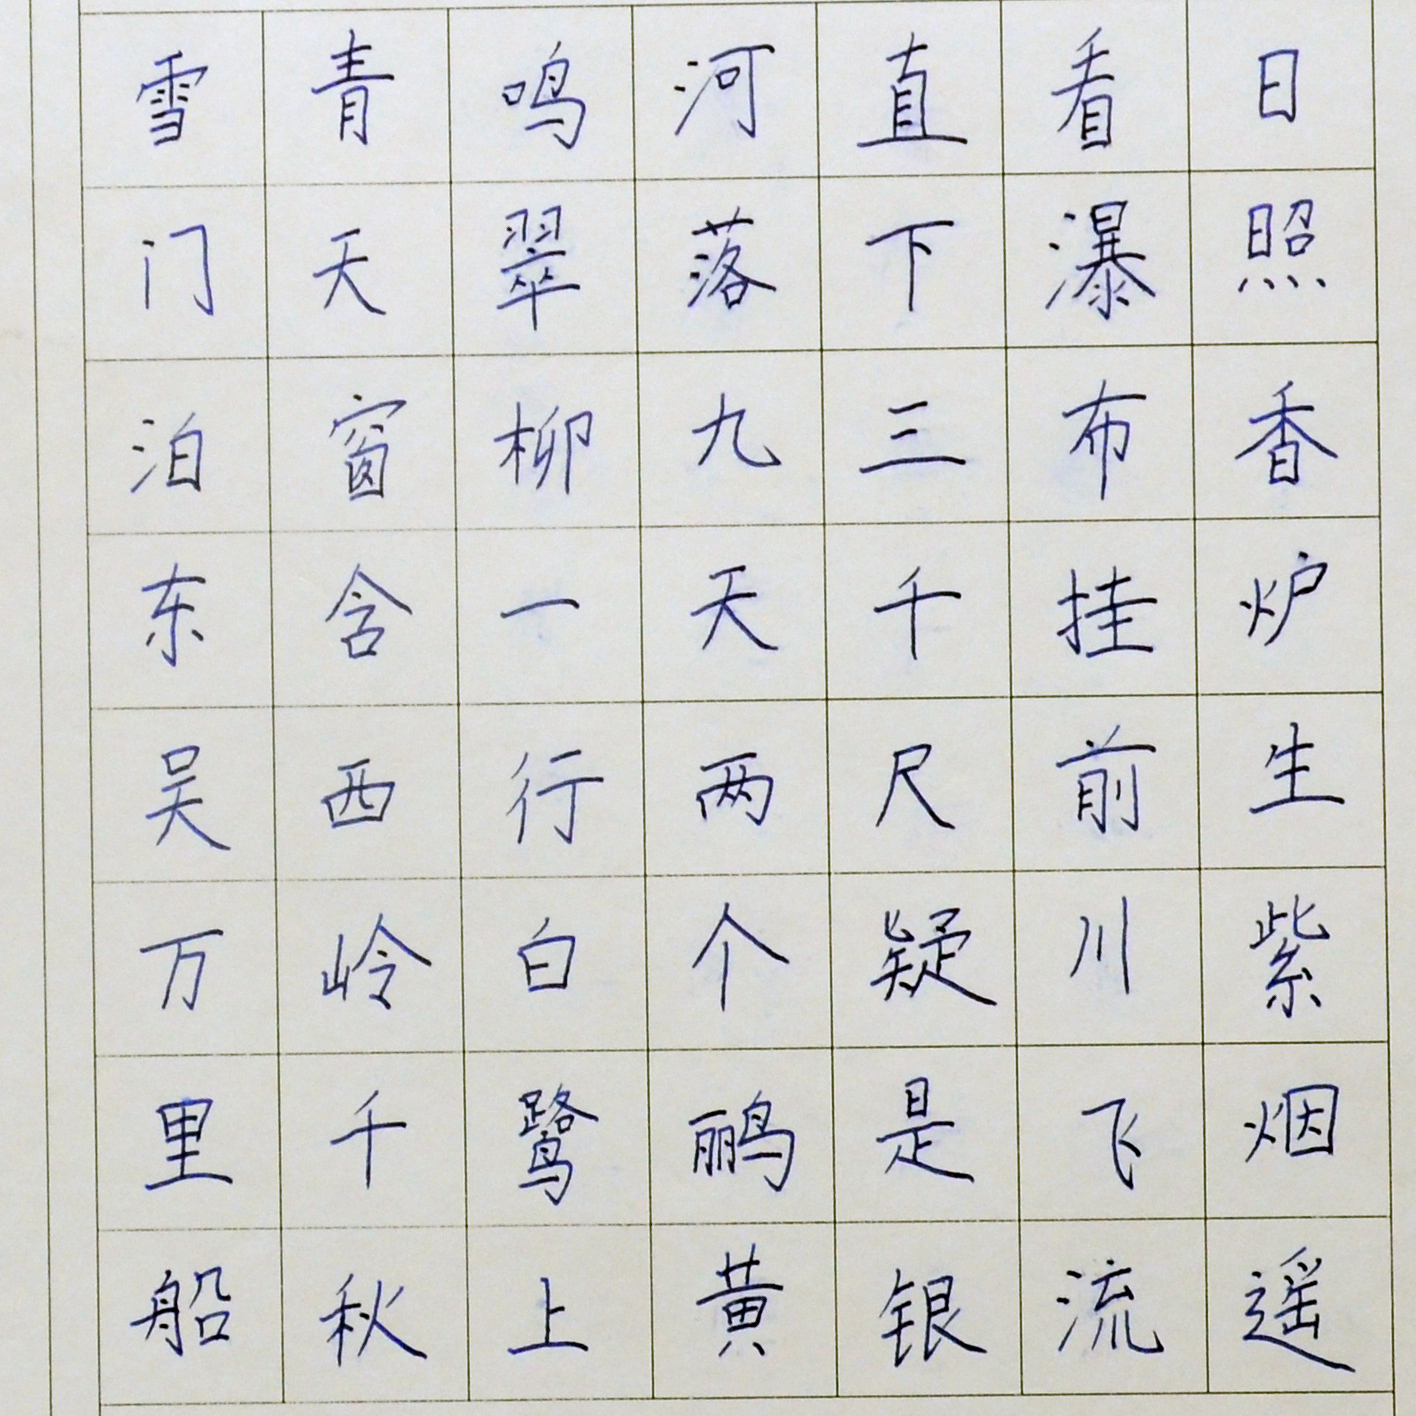 日照香炉生紫烟遥
看瀑布挂前川飞流
直下三千尺疑是银
河落九天两个鹂黄
鸣翠柳一行白鹭上
青天窗含西岭千秋
雪门泊东吴万里船